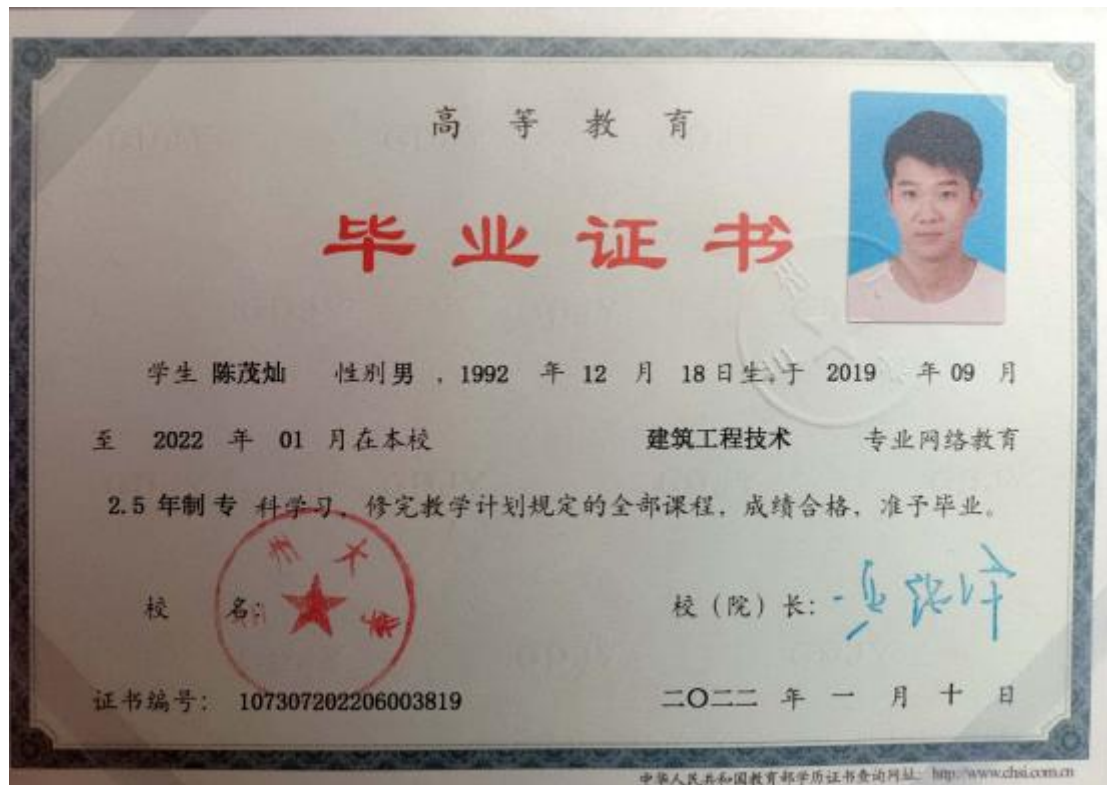 高等教育
毕业证书
学生 陈茂灿 性别 男 , 1992 年 12 月 18 日生,于 2019 年 09 月
至 2022 年 01 月在本校 建筑工程技术 专业网络教育
2.5 年制 专 科学习, 修完教学计划规定的全部课程, 成绩合格, 准予毕业。
校 名: 校(院)长:
证书编号: 107307202206003819 二〇二二 年 一 月 十 日
中华人民共和国教育部学历证书查询网址: http://www.chsi.com.cn